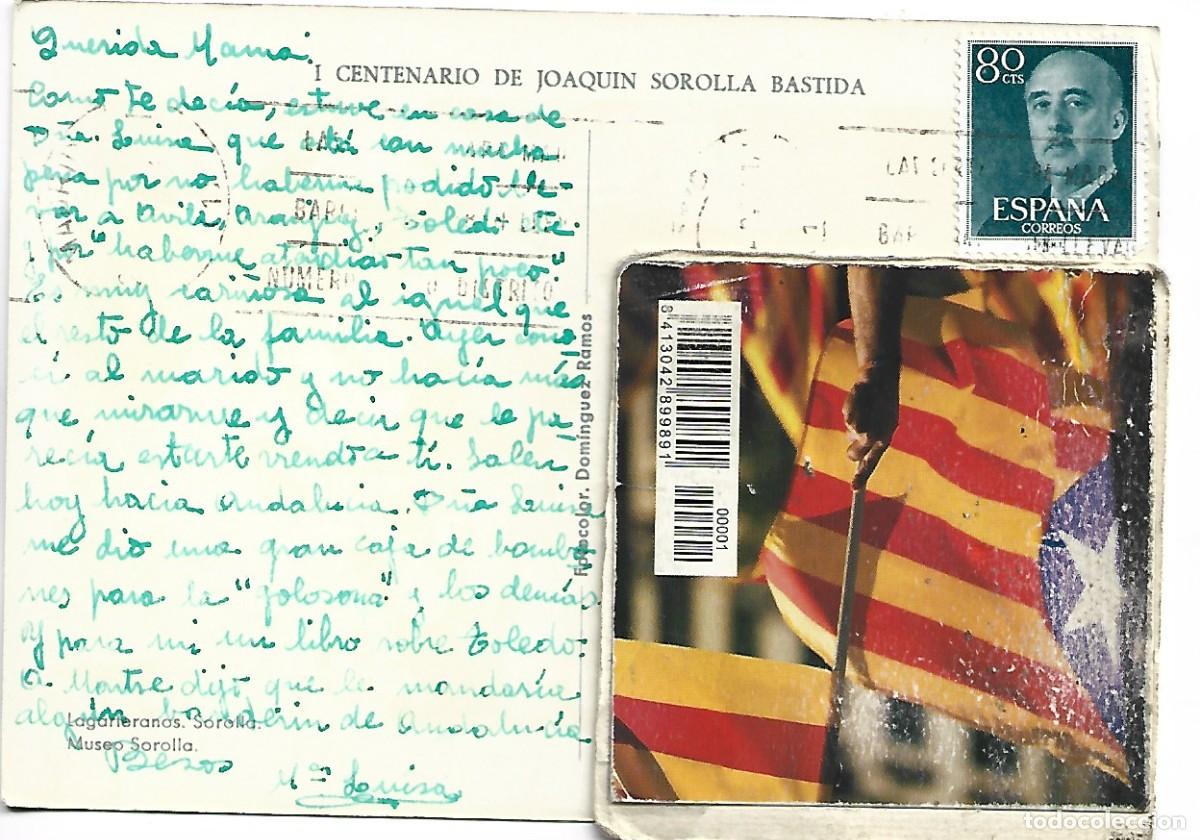 Querida Mamá.
I CENTENARIO DE JOAQUIN SOROLLA BASTIDA
Como te decía, estuve en casa de
Dña. Luisa que está con mucha
pena por no haberme podido lle-
var a Avila, Aranjuez, Toledo etc.
y por "haberme atendido tan poco"
Es muy cariñosa al igual que
el resto de la familia. Ayer cono
cí al marido y no hacía más
que mirarme y decir que le pa
recía estarte viendo a tí. Salen
hoy hacia Andalucia. Dña Luisa
me dio una gran caja de bombo
nes para la "golosona" y los demás
y para mi un libro sobre Toledo.
A Montse dijo que le mandaría
algún de Andalucía
Besos
Mª Luisa
Lagarteranos. Sorolla.
Museo Sorolla.
Fotocolor. Domínguez Ramos
80 CTS
ESPAÑA
CORREOS
NUMERO DISTRITO
8413042899891
00001
todocoleccion